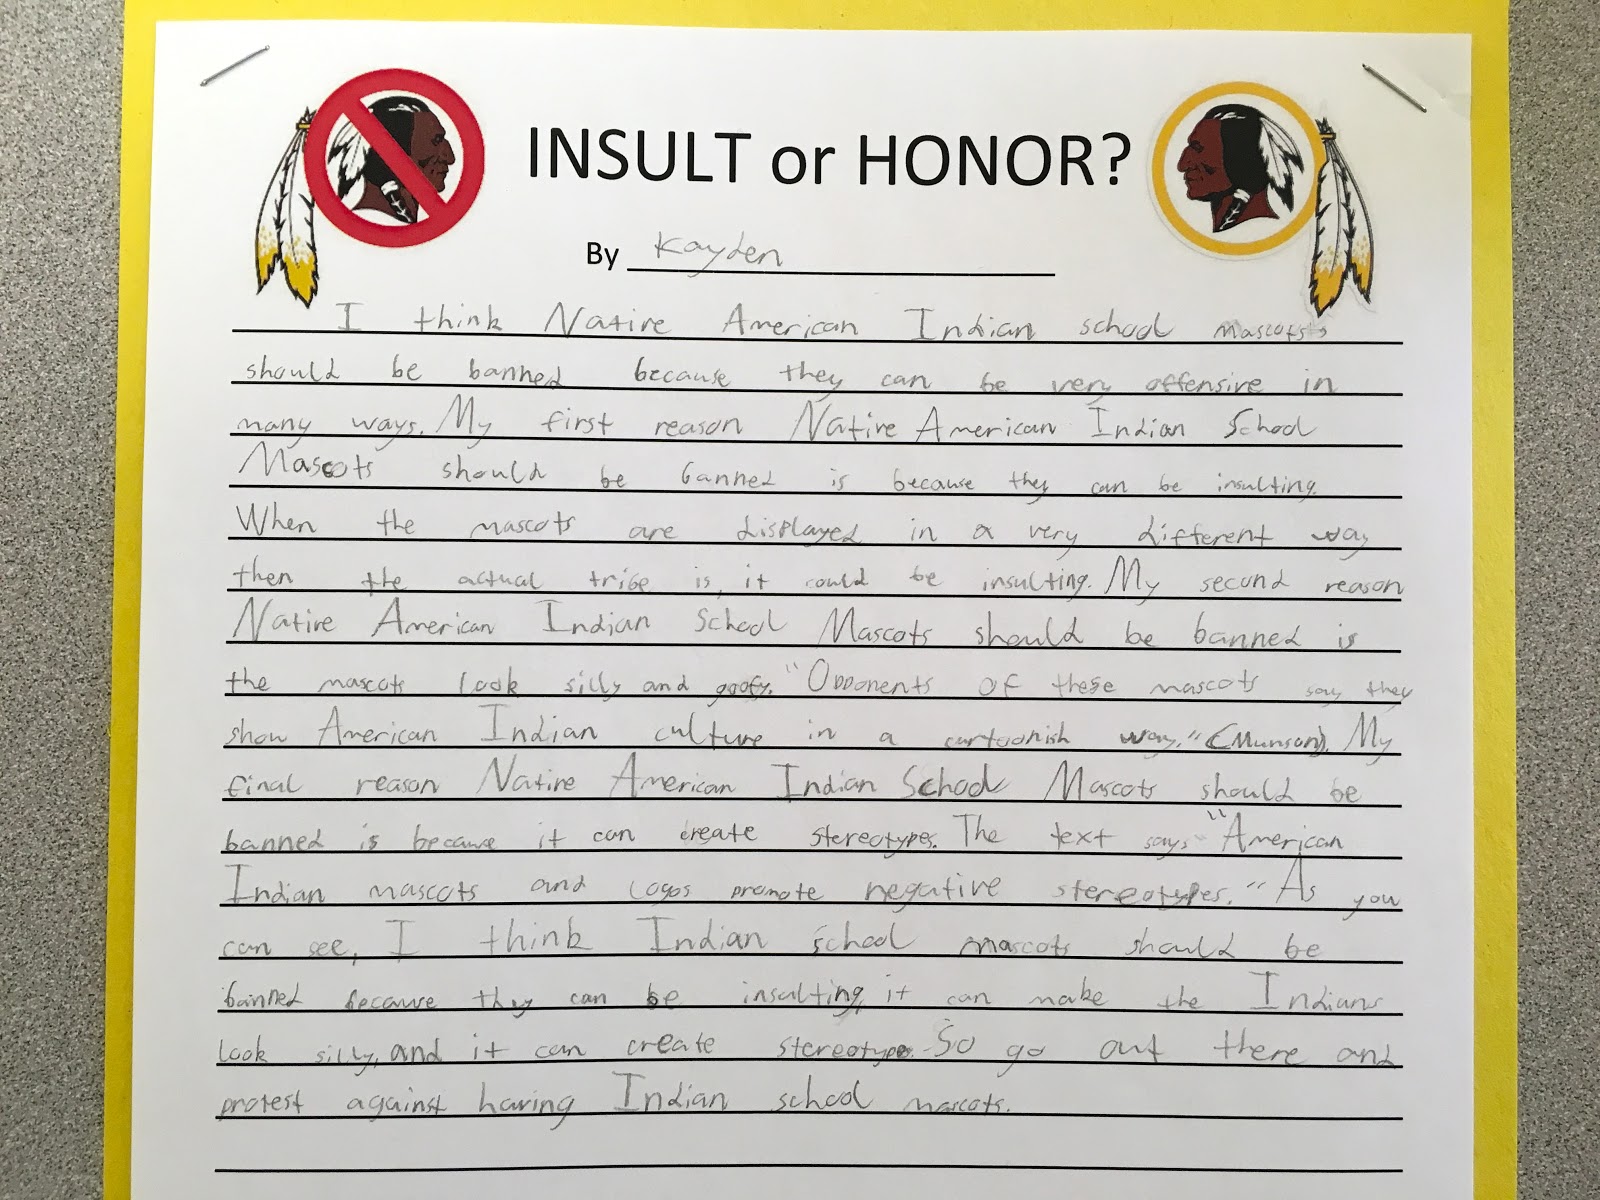 INSULT or HONOR?
By Kayden
I think Native American Indian school mascots
should be banned because they can be very offensive in
many ways. My first reason Native American Indian School
Mascots should be banned is because they can be insulting.
When the mascots are displayed in a very different way
then the actual tribe is, it could be insulting. My second reason
Native American Indian School Mascots should be banned is
the mascots look silly and goofy. "Opponents of these mascots say they
show American Indian culture in a cartoonish way." (Munson). My
final reason Native American Indian School Mascots should be
banned is because it can create stereotypes. The text says "American
Indian mascots and logos promote negative stereotypes." As you
can see, I think Indian school mascots should be
banned because they can be insulting, it can make the Indians
look silly, and it can create stereotype. So go out there and
protest against having Indian school mascots.